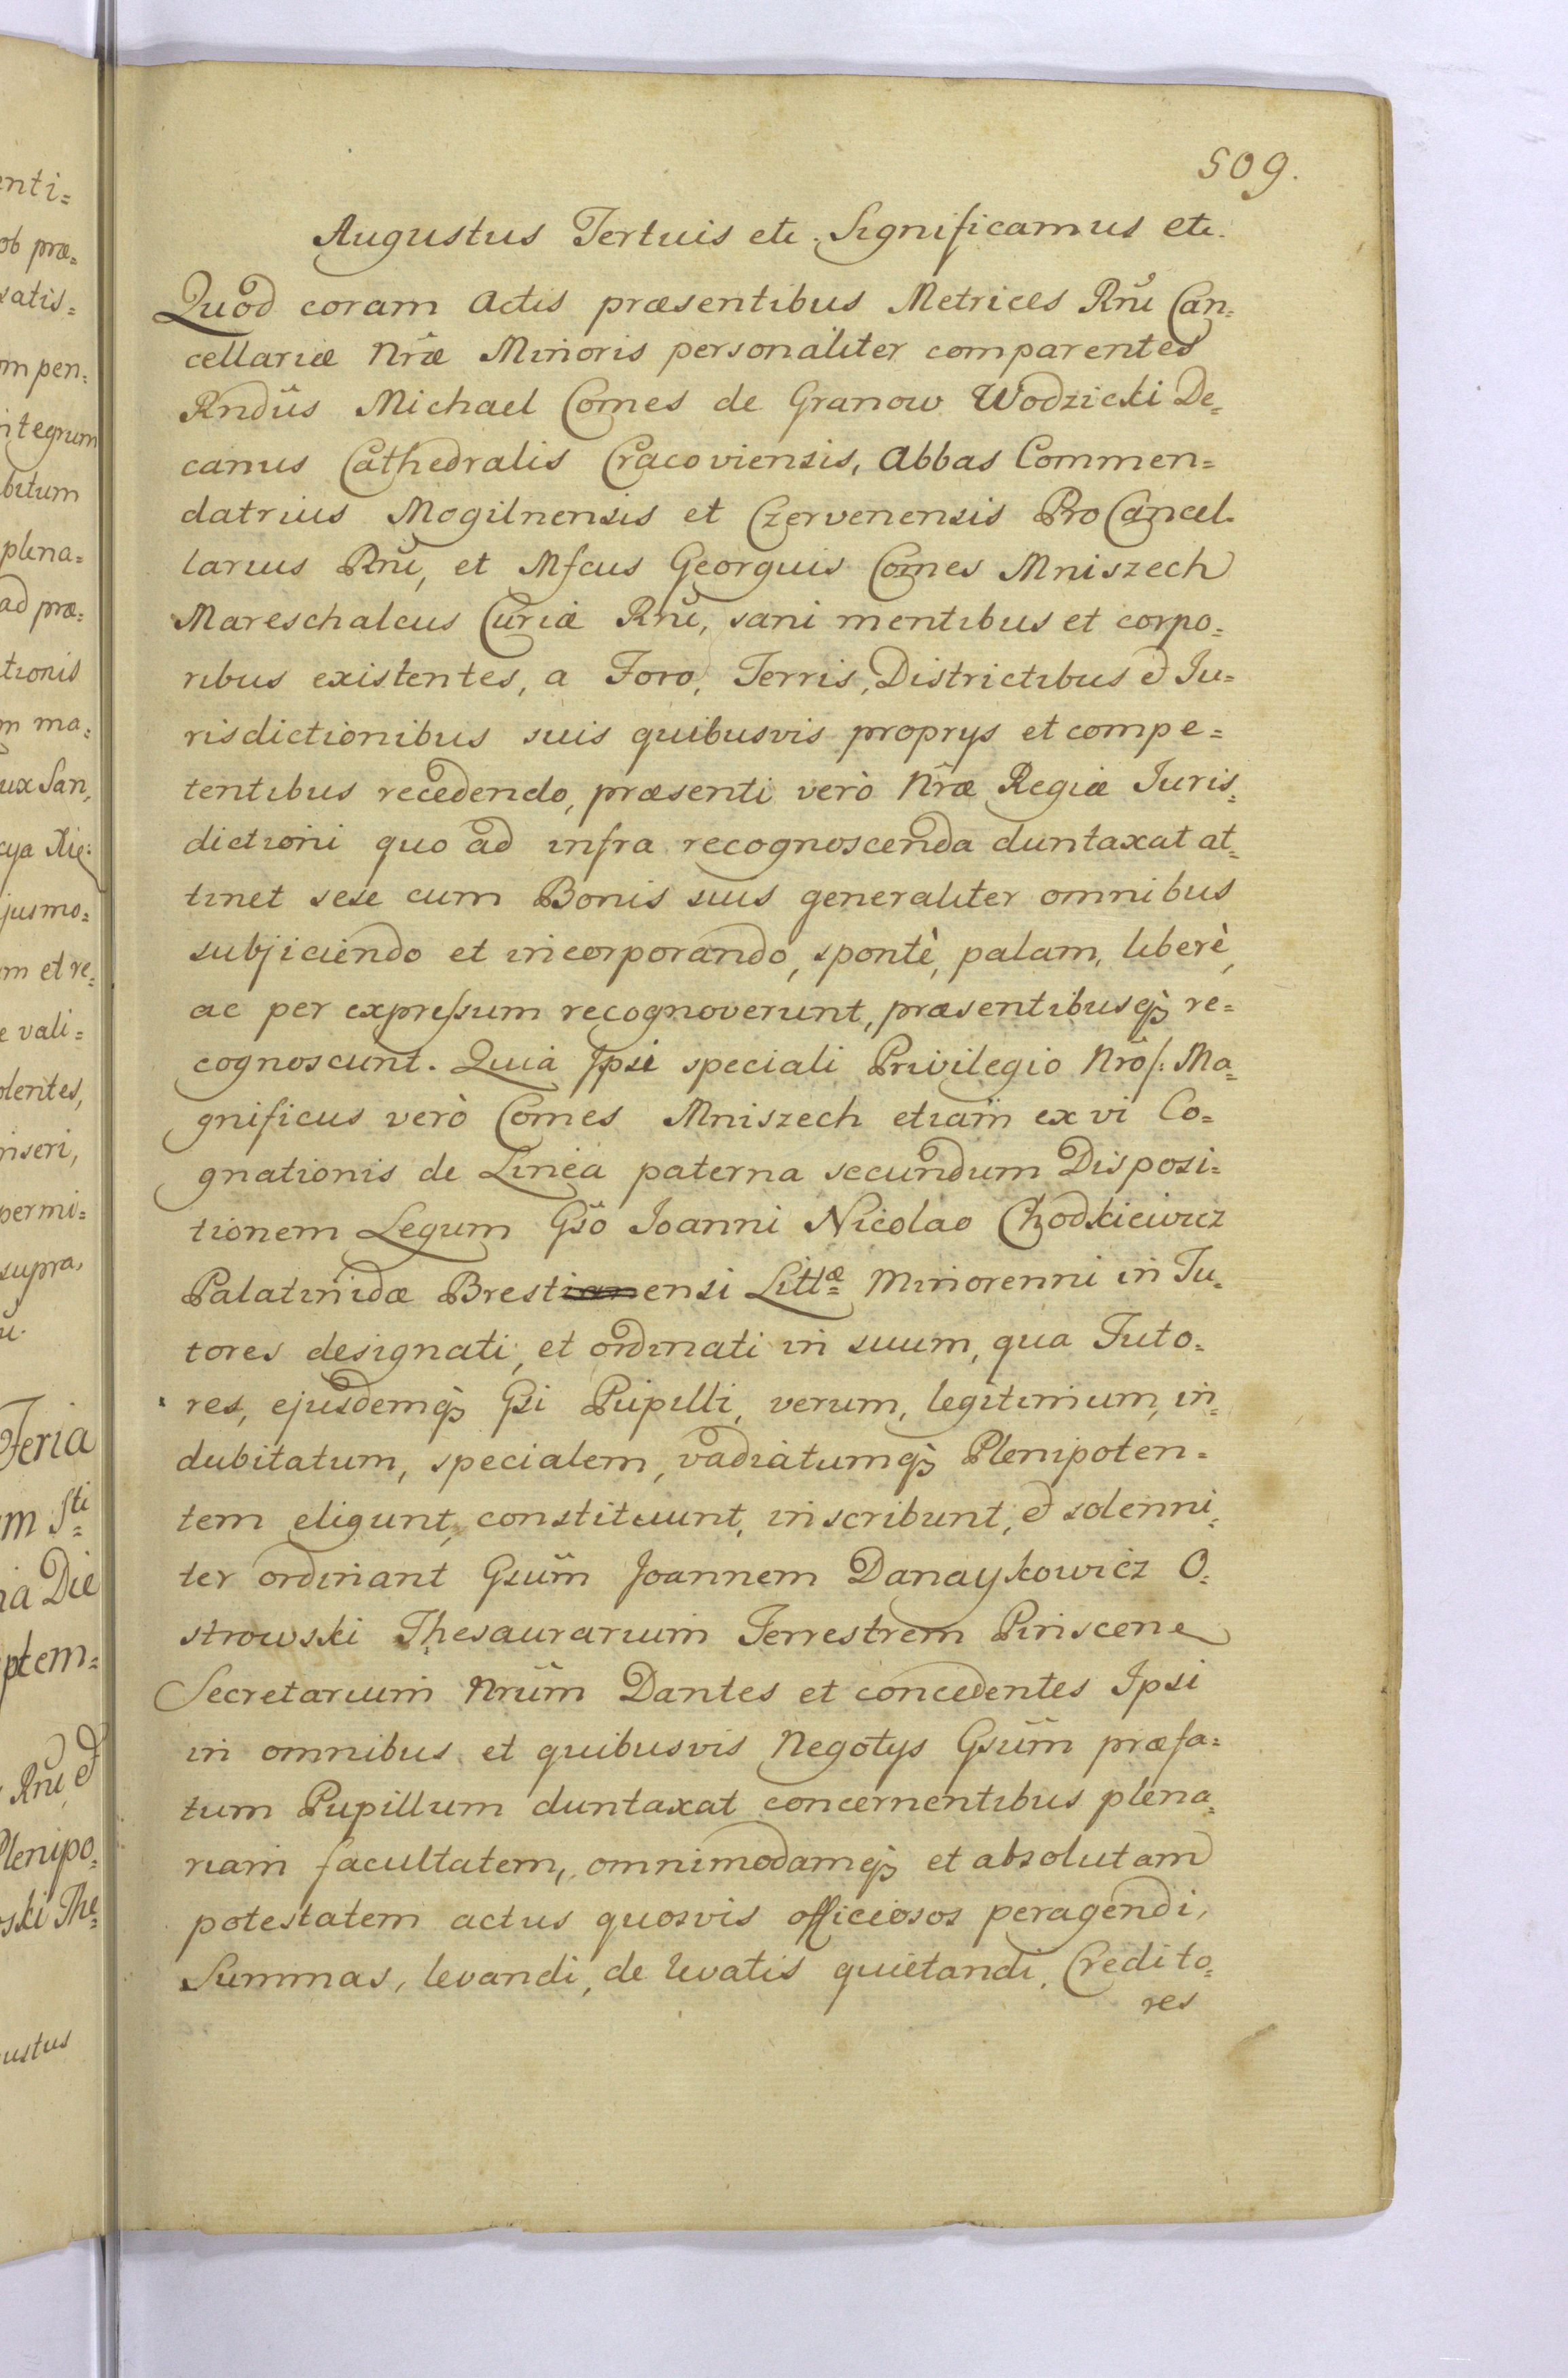 509.
Augustus Tertius etc. Significamus etc.
Quod coram Actis præsentibus Metrices Rñi Can=
cellariæ Nr̃æ Minoris personaliter comparentes
Rndũs Michael Comes de Granow Wodzicki De=
canus Cathedralis Cracoviensis, Abbas Commen=
datrius Mogilnensis et Czervenensis ProCancel=
larius Rñi, et Mfcus Georgius Comes Mniszech
Mareschalcus Curiæ Rñi, sani mentibus et corpo=
ribus existentes, a Foro, Terris, Districtibus et Ju=
risdictionibus suis quibusvis proprys et compe=
tentibus recedendo, præsenti verò Nr̃æ Regiæ Juris=
dictioni quo ad infra recognoscenda duntaxat at=
tinet sese cum Bonis suis generaliter omnibus
subjiciendo et incorporando, spontè, palam, liberè,
ac per expressum recognoverunt, præsentibusq̃ re=
cognoscunt. Quia Ipsi speciali Privilegio Nrõ /: Ma=
gnificus verò Comes Mniszech etiam ex vi Co=
gnationis de Linea paterna secundum Disposi=
tionem Legum Gsõ Joanni Nicolao Chodkiewicz
Palatinidæ Brestensi Littæ Minorenni in Tu=
tores designati, et ordinati in suum, qua Tuto=
res, ejusdemq̃ Gsi Pupilli, verum, legitimum, in=
dubitatum, specialem, vadiatumq̃ Plenipoten=
tem eligunt, constituunt, inscribunt, et solenni=
ter ordinant Gsum̃ Joannem Danaykowicz O=
strowski Thesaurarium Terrestrem Pinscen
Secretarium Nrum̃ Dantes et concedentes Ipsi
in omnibus et quibusvis Negotys Gsum̃ præfa=
tum Pupillum duntaxat concernentibus plena=
riam facultatem, omnimodamq̃ et absolutam
potestatem actus quosvis officiosos peragendi,
Summas, levandi, de levatis quietandi, Credito=
res